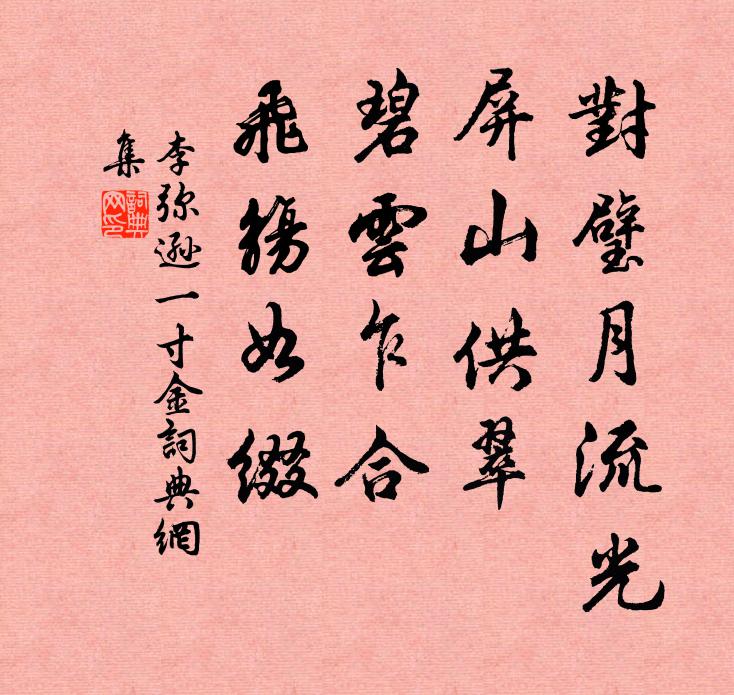 對璧月流光
屏山供翠
碧雲乍合
飛觴如綴
李弥遜一寸金詞典網
集
詞典
网印